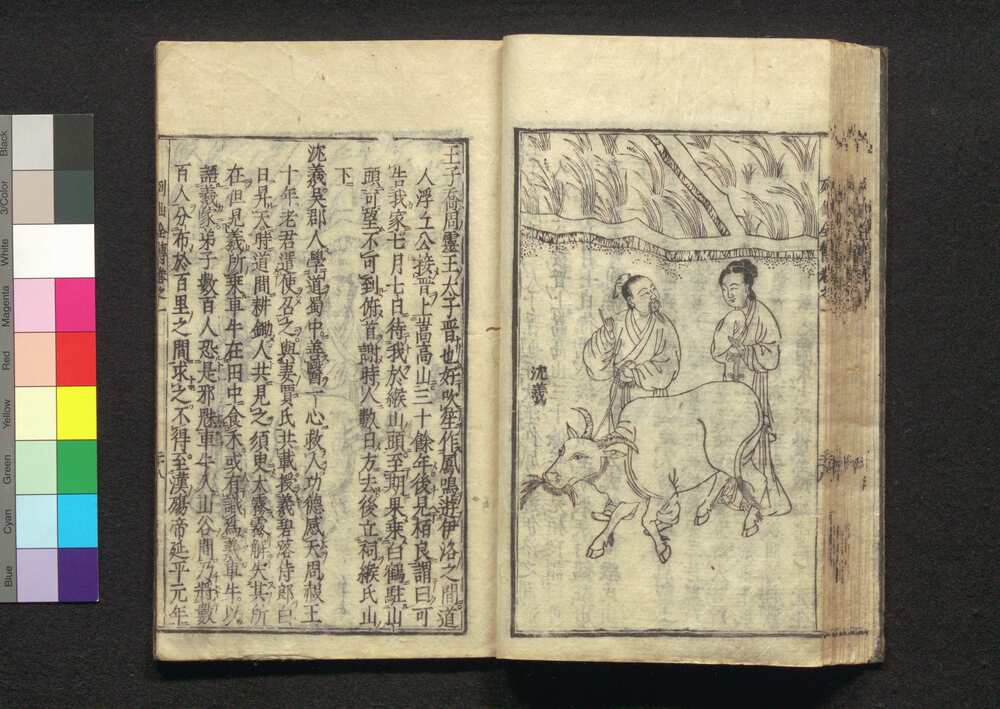 沈羲
王子喬周靈王太子晉也好吹笙作鳳鳴遊伊洛之間道
人浮丘公接晉上嵩高山三十餘年後見栢良謂曰可
告我家七月七日待我於緱山頭至期果乘白鶴駐山
頭可望不可到俯首謝時人數日方去後立祠緱氏山
下
沈羲吳郡人學道蜀中善醫一心救人功德感天周赧王
十年老君遣使召之與妻賈氏共載授羲碧落侍郎白
日昇天時道間耕鋤人共見之須臾大霧霧解失其所
在但見羲所乘車牛在田中食禾或有識爲羲車牛以
語羲家弟子數百人恐是邪魅車牛入山谷間乃將數
百人分布於百里之間求之不得至漢殤帝延平元年
Blue
Cyan
Green
Yellow
Red
Magenta
White
3/Color
Black